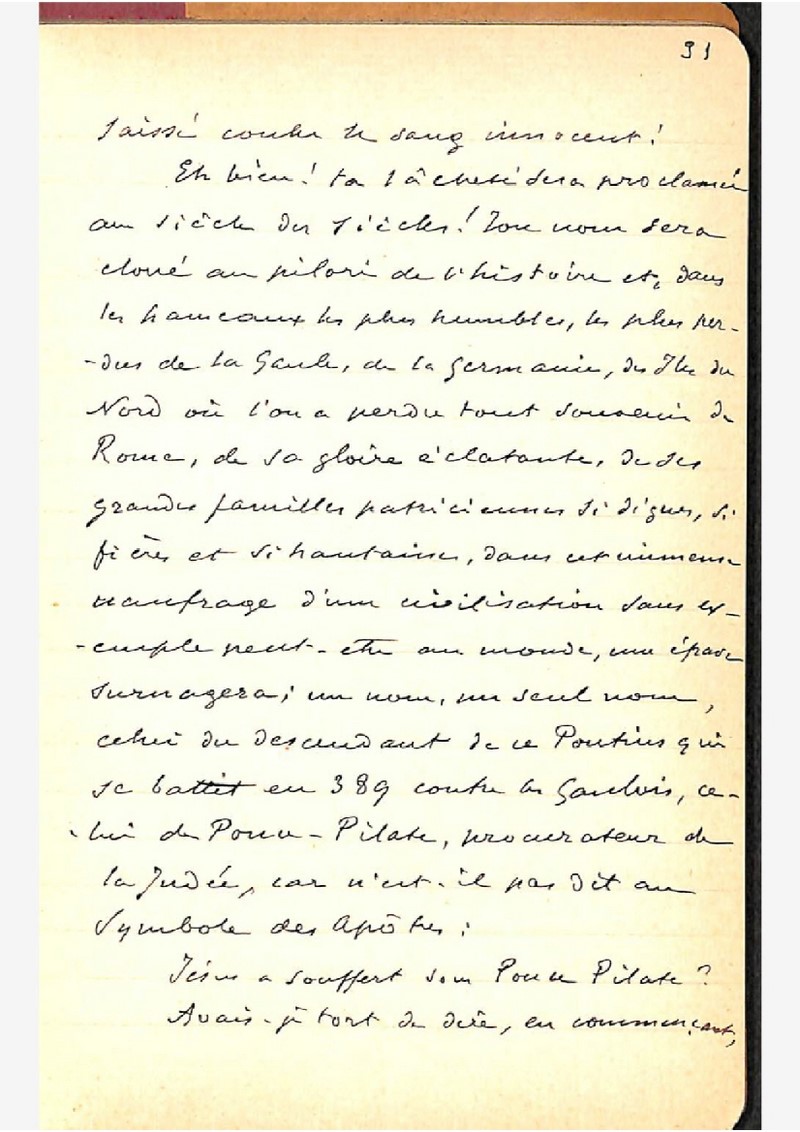 31
laissé couler le sang innocent !
Eh bien ! ta lâcheté sera proclamée
au siècle des siècles ! Ton nom sera
cloué au pilori de l'histoire et, dans
les hameaux les plus humbles, les plus per-
-dus de la Gaule, de la Germanie, des Iles du
Nord où l'on a perdu tout souvenir de
Rome, de sa gloire éclatante, de ses
grandes familles patriciennes si dignes, si
fières et si hautaines, dans cet immense
naufrage d'une civilisation sans ex-
-emple peut-être au monde, une épave
surnagera ; un nom, un seul nom,
celui du descendant de ce Pontius qui
se battit en 389 contre les Gaulois, ce-
-lui de Ponce-Pilate, procurateur de
la Judée, car n'est-il pas dit au
Symbole des Apôtres :
Jésus a souffert sous Ponce Pilate ?
Avais-je tort de dire, en commençant,